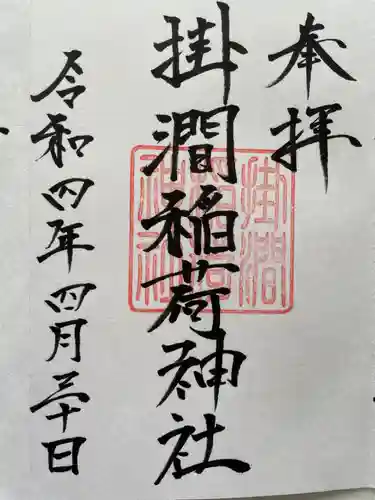 奉拝
掛澗稲荷神社
令和四年四月三十日
掛澗
稲荷
神社